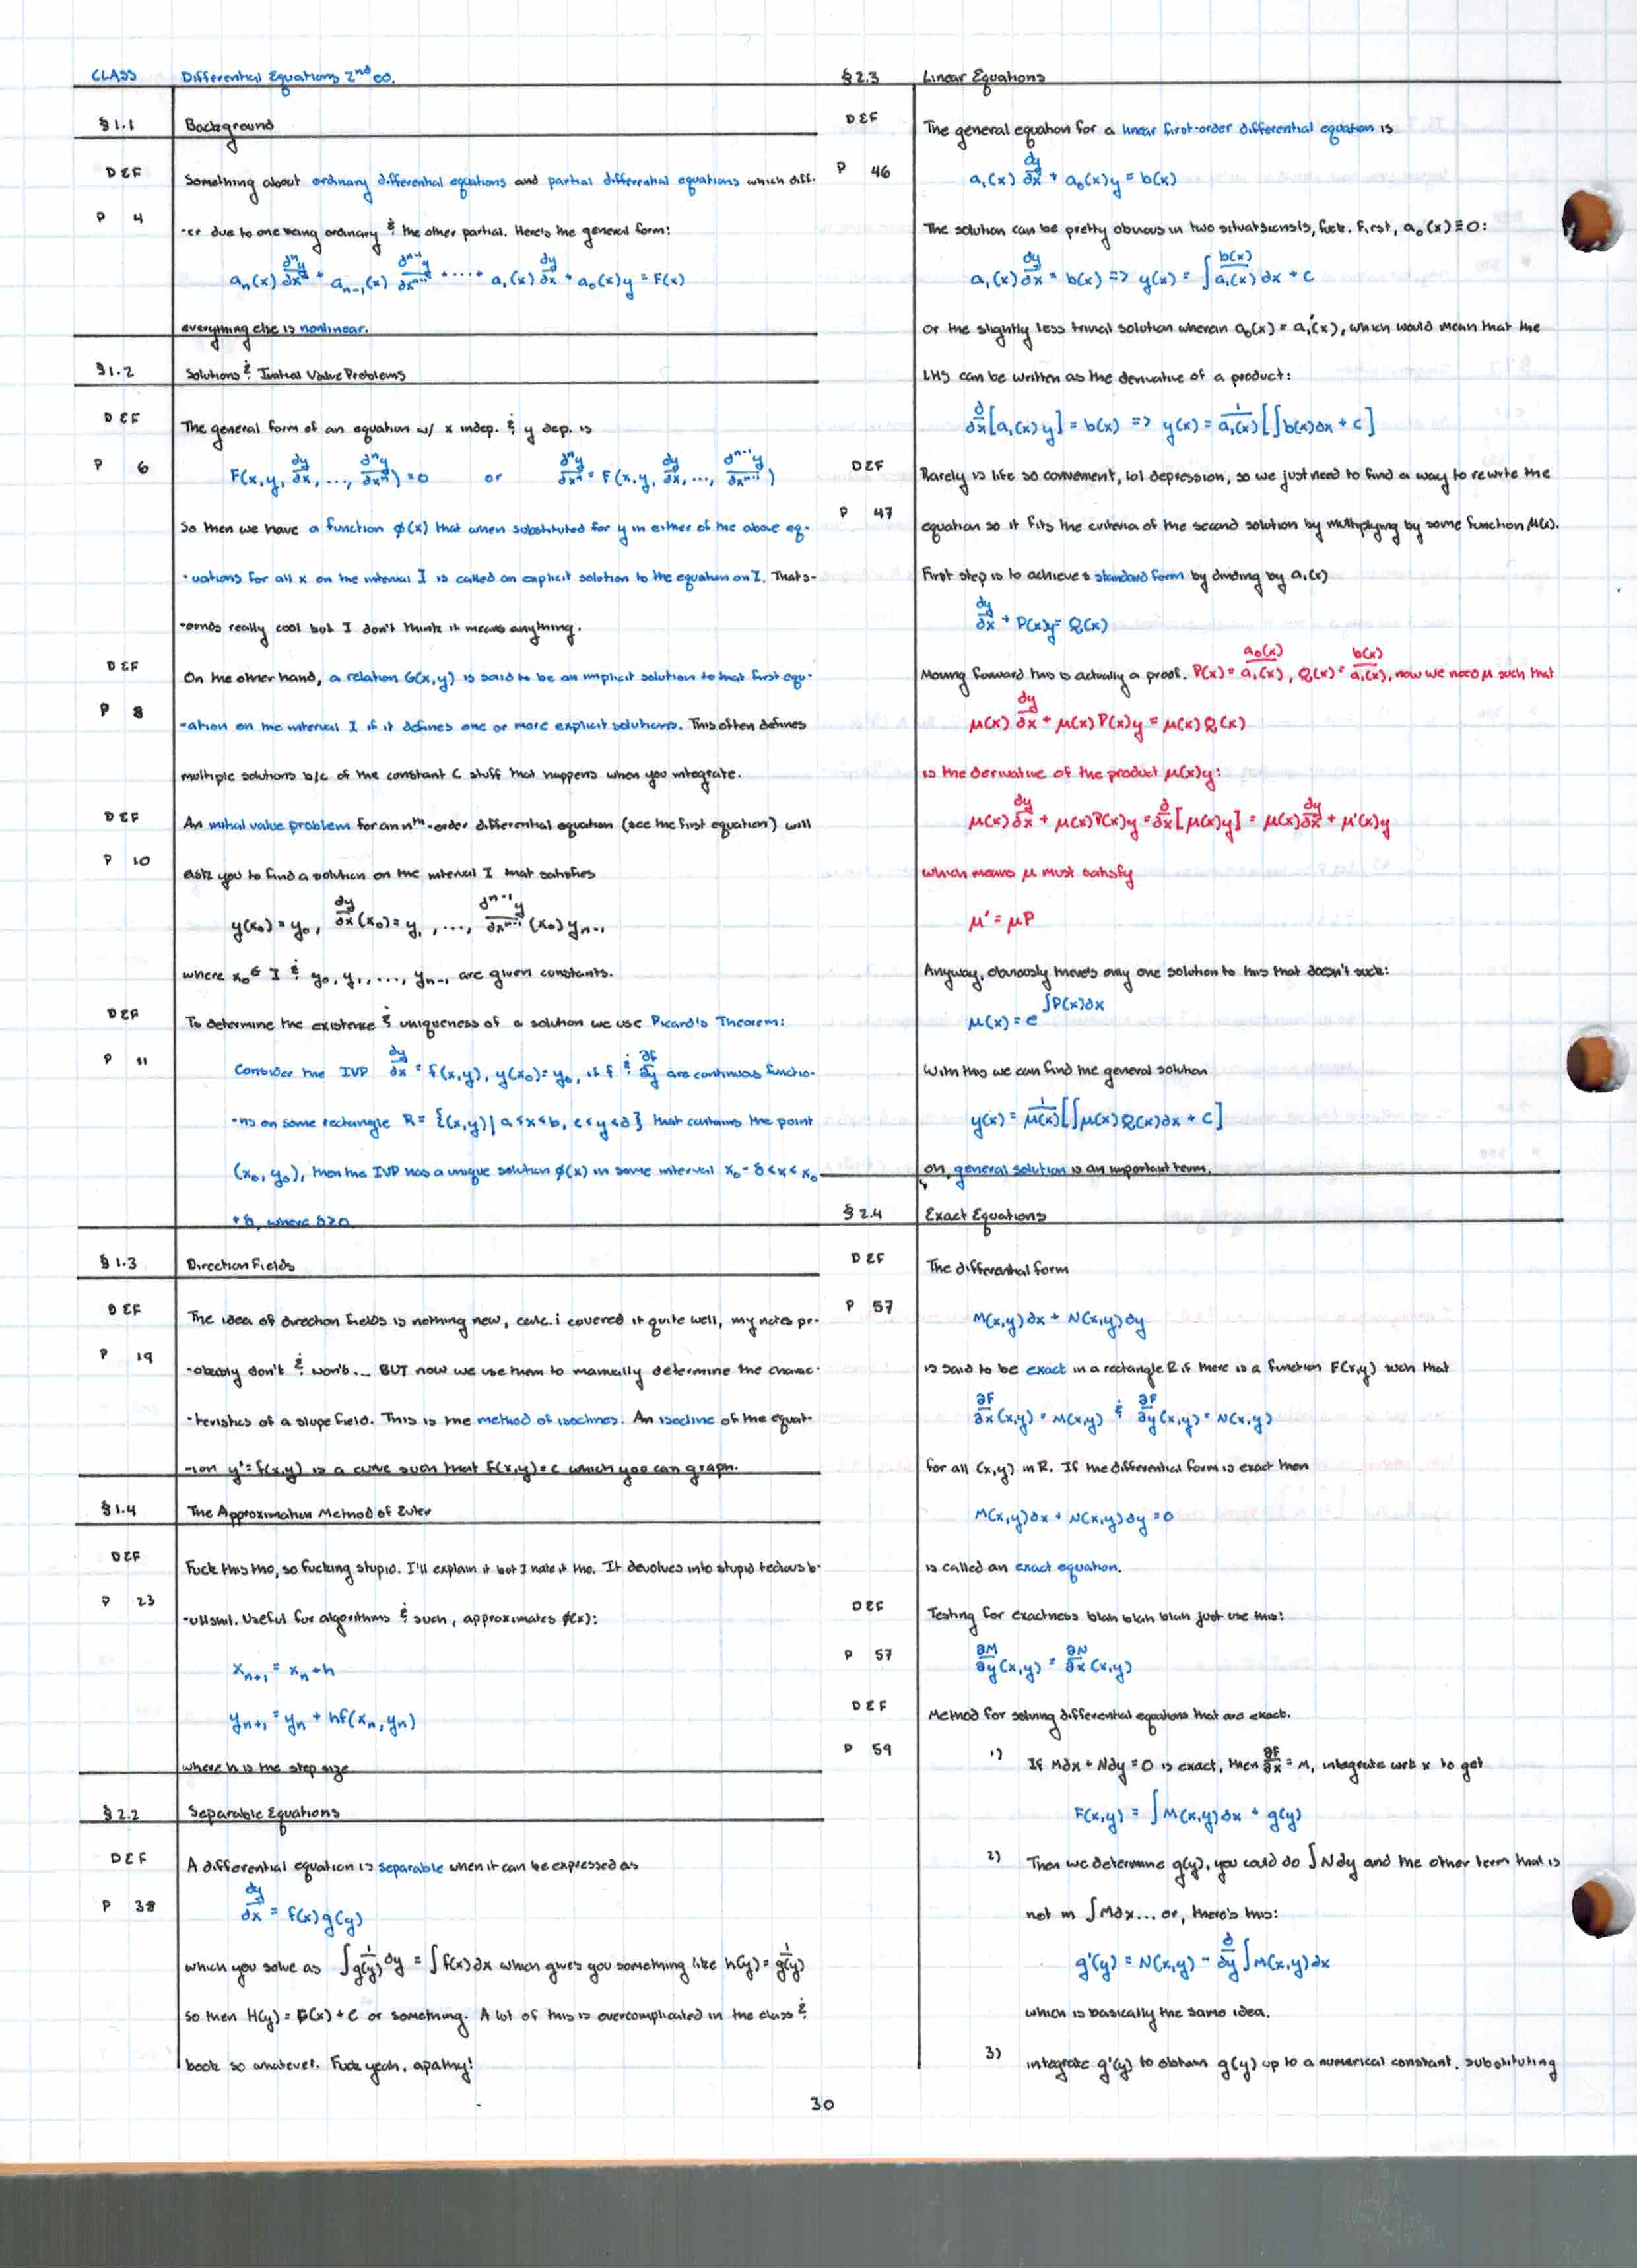 CLASS Differential Equations 2nd ed.
§1.1 Background
DEF Something about ordinary differential equations and partial differential equations which diff-
P 4 -er due to one being ordinary & the other partial. Here's the general form:
aₙ(x) dⁿy/dxⁿ + aₙ₋₁(x) dⁿ⁻¹y/dxⁿ⁻¹ + ···· + a₁(x) dy/dx + a₀(x)y = F(x)
everything else is nonlinear.
§1.2 Solutions & Initial Value Problems
DEF The general form of an equation w/ x indep. & y dep. is
P 6 F(x, y, dy/dx, ..., dⁿy/dxⁿ) = 0 or dⁿy/dxⁿ = F(x, y, dy/dx, ..., dⁿ⁻¹y/dxⁿ⁻¹)
So then we have a function φ(x) that when substituted for y in either of the above eq-
-uations for all x on the interval I is called an explicit solution to the equation on I. That s-
-ounds really cool but I don't think it means anything.
DEF On the other hand, a relation G(x,y) is said to be an implicit solution to that first equ-
P 8 -ation on the interval I if it defines one or more explicit solutions. This often defines
multiple solutions b/c of the constant C stuff that happens when you integrate.
DEF An initial value problem for an nth-order differential equation (see the first equation) will
P 10 ask you to find a solution on the interval I that satisfies
y(x₀) = y₀, dy/dx (x₀) = y₁, ..., dⁿ⁻¹y/dxⁿ⁻¹ (x₀) yₙ₋₁
where x₀ ∈ I & y₀, y₁, ..., yₙ₋₁ are given constants.
DEF To determine the existence & uniqueness of a solution we use Picard's Theorem:
P 11 Consider the IVP dy/dx = f(x,y), y(x₀) = y₀, if f & ∂f/∂y are continuos functio-
-ns on some rectangle R = {(x,y) | a<x<b, c<y<d} that contains the point
(x₀, y₀), then the IVP has a unique solution φ(x) in some interval x₀ - δ < x < x₀
+ δ, where δ>0
§1.3 Direction Fields
DEF The idea of direction fields is nothing new, calc. i covered it quite well, my notes pr-
P 19 -obably don't & won't... BUT now we use them to manually determine the charac-
-teristics of a slope field. This is the method of isoclines. An isocline of the equat-
-ion y' = f(x,y) is a curve such that f(x,y) = c which you can graph.
§1.4 The Approximation Method of Euler
DEF Fuck this tho, so fucking stupid. I'll explain it but I hate it tho. It devolves into stupid tedious b-
P 23 -ullshit. Useful for algorithms & such, approximates φ(x):
xₙ₊₁ = xₙ + h
yₙ₊₁ = yₙ + hf(xₙ, yₙ)
where h is the step size
§2.2 Separable Equations
DEF A differential equation is separable when it can be expressed as
P 38 dy/dx = f(x)g(y)
which you solve as ∫ 1/g(y) dy = ∫ f(x)dx which gives you something like h(y) = 1/g(y)
so then H(y) = F(x) + C or something. A lot of this is overcomplicated in the class &
book so whatever. Fuck yeah, apathy!
§2.3 Linear Equations
DEF The general equation for a linear first-order differential equation is
P 46 a₁(x) dy/dx + a₀(x)y = b(x)
The solution can be pretty obvious in two fuck. First, a₀(x) ≡ 0:
a₁(x) dy/dx = b(x) => y(x) = ∫ b(x)/a₁(x) dx + C
or the slightly less trivial solution wherein a₀(x) = a₁'(x), which would mean that the
LHS can be written as the derivative of a product:
d/dx [a₁(x)y] = b(x) => y(x) = 1/a₁(x) [∫b(x)dx + C]
DEF Rarely is life so convenient, lol depression, so we just need to find a way to rewrite the
P 47 equation so it fits the criteria of the second solution by multiplying by some function μ(x).
First step is to achieve standard form by dividing by a₁(x)
dy/dx + P(x)y = Q(x)
Moving forward this is actually a proof. P(x) = a₀(x)/a₁(x), Q(x) = b(x)/a₁(x), now we need μ such that
μ(x) dy/dx + μ(x)P(x)y = μ(x)Q(x)
is the derivative of the product μ(x)y:
μ(x) dy/dx + μ(x)P(x)y = d/dx [μ(x)y] = μ(x) dy/dx + μ'(x)y
which means μ must satisfy
μ' = μP
Anyway, obviously there's only one solution to this that doesn't suck:
μ(x) = e^∫P(x)dx
With this we can find the general solution
y(x) = 1/μ(x) [∫μ(x)Q(x)dx + C]
oh, general solution is an important term.
§2.4 Exact Equations
DEF The differential form
P 57 M(x,y)dx + N(x,y)dy
is said to be exact in a rectangle R if there is a function F(x,y) such that
∂F/∂x (x,y) = M(x,y) & ∂F/∂y (x,y) = N(x,y)
for all (x,y) in R. If the differential form is exact then
M(x,y)dx + N(x,y)dy = 0
is called an exact equation.
DEF Testing for exactness blah blah blah just use this:
P 57 ∂M/∂y (x,y) = ∂N/∂x (x,y)
DEF Method for solving differential equations that are exact.
P 59 1) If Mdx + Ndy = 0 is exact, then ∂F/∂x = M, integrate wrt x to get
F(x,y) = ∫M(x,y)dx + g(y)
2) Then we determine g(y), you could do ∫Ndy and the other term that is
not in ∫Mdx... or, there's this:
g'(y) = N(x,y) - ∂/∂y ∫M(x,y)dx
which is basically the same idea.
3) integrate g'(y) to obtain g(y) up to a numerical constant. substituting
30